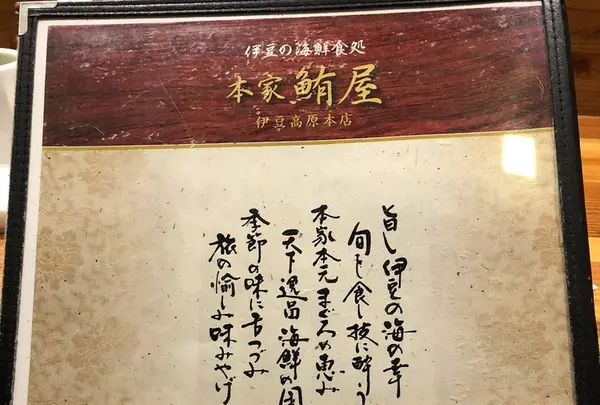 伊豆の海鮮食処
本家鮪屋
伊豆高原本店
旨し伊豆の海の幸
旬を食し技に酔う
本家本元まぐろの恵み
天下逸品海鮮の国
季節の味に舌つづみ
旅の愉しみ味みやげ